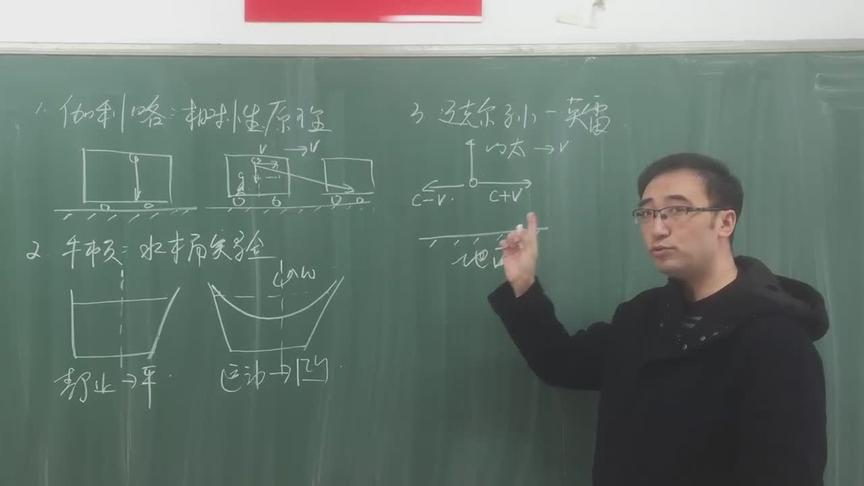 1. 伽利略：相对性原理
v →v
2. 牛顿：水桶实验
ω
静止→平.
运动→凹.
3. 迈克尔孙-莫雷
以太 →v
c-v. c+v
地面